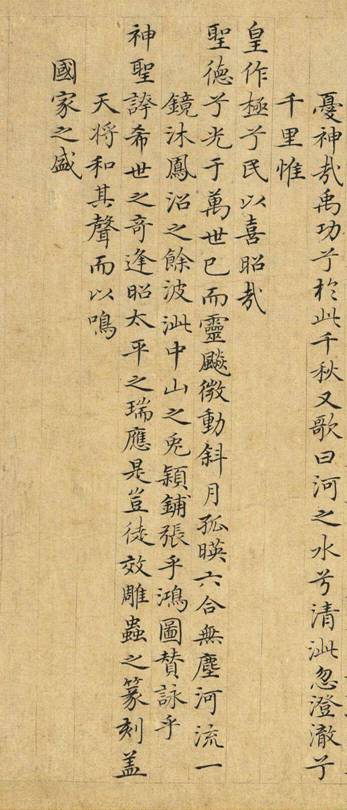 憂神哉禹功兮於此千秋又歌曰河之水兮清泚忽澄澈兮
千里惟
皇作極兮民以喜昭哉
聖德兮光于萬世已而靈飈微動斜月孤暎六合無塵河流一
鏡沐鳳沼之餘波泚中山之兔穎鋪張乎鴻圖賛詠乎
神聖誇希世之奇逢昭太平之瑞應是豈徒效雕蟲之篆刻盖
天将和其聲而以鳴
國家之盛